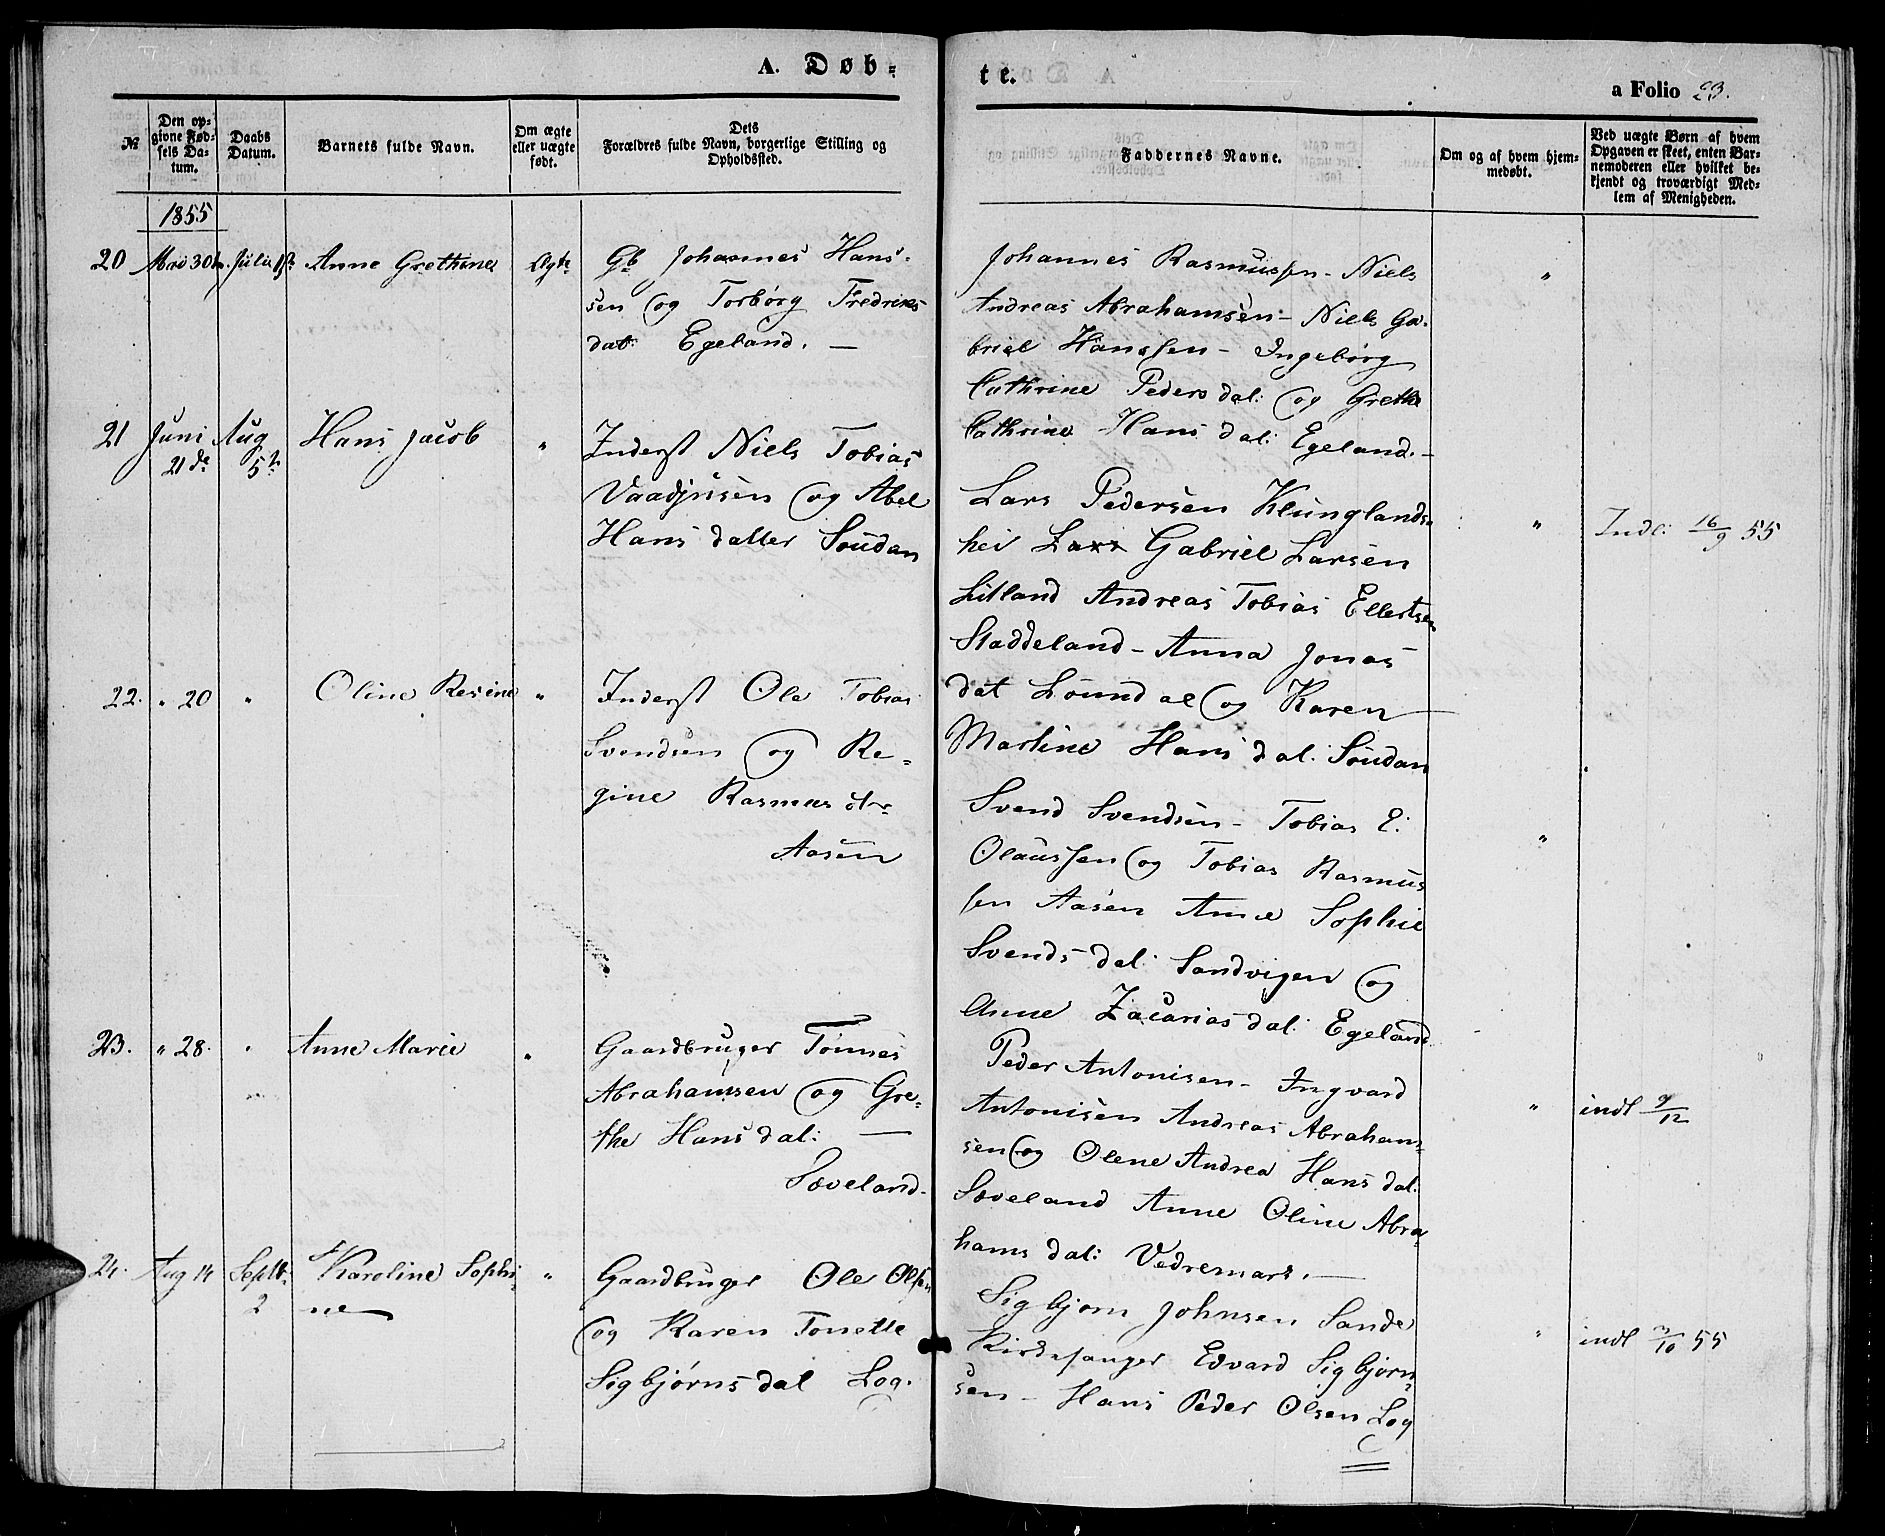 A. Døb=
te.
a Folio 23.
№
Den op=
givne Fød=
sels Da=
tum.
Daabs
Datum.
Barnets fulde Navn.
Om ægte
eller uægte
født.
Dets
Forældres fulde Navn, borgerlige Stilling og
Opholdssted.
Faddernes Navne.
Om og af hvem hjem=
medøbt.
Ved uægte Børn af hvem
Opgaven er skeet, enten Bar=
nemoderen eller hvilket be=
kjendt og troværdigt Med=
lem af Menigheden.
1855
20
Julii 1st
Anne Grethine
Ægte
Gb Johannes Hans-
sen og Torborg Fredriks
dat: Egeland. —
Johannes Rasmussen - Niels
Andreas Abrahamsen - Niels Ga-
briel Hanssen - Ingeborg
Cathrine Peders dal: og Grethe
Cathrine Hans dal: Egeland. -
"
21
Juni
21de
Aug
5t
Hans Jacob
"
Inderst Niels Tobias
og Abel
Hans datter Soudan
Lars Pedersen Klunglands-
hei Lars Gabriel Larsen
Litland Andreas Tobias Ellertsen
Staddeland - Anna Jonas
dat og Karen
Martine Hans dal: Soudan
"
Indl: 16/9 55
22.
" 20
"
Oline Resine
"
Inderst Ole Tobias
Svendsen og Re=
gine Rasmus dtr
Aasen
Svend Svendsen - Tobias E.
Olaussen og Tobias Rasmus
sen Aasen Anne Sophie
Svends dal: Sandvigen og
Anne Zacarias dal: Egeland
"
23.
" 28.
"
Anne Marie
"
Gaardbruger Tönnes
Abrahamsen og Gre=
the Hans dal: —
Soveland -
Peder Antonisen - Ingvard
Antonisen Andreas Abraham-
sen og Olene Andrea Hans dal:
Soveland Anne Oline Abra-
hams dal: Vedremark. —
"
indl 9/12
24.
Aug 14
Septb:
2
Karoline Sophi-
ne
"
Gaardbruger Ole Olsen
og Karen Tonette
Sigbjørns dal Log.
Sigbjørn Johnsen Sande
Kirkesanger Edvard Sigbjørn=
sen - Hans Peder Olsen Log
"
indl 3/10 55